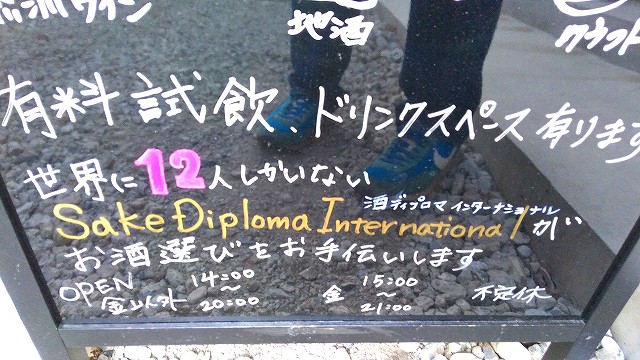 地酒
有料試飲、ドリンクスペース有ります
世界に12人しかいない
酒ディプロマ インターナショナル
Sake Diploma Internationalが
お酒選びをお手伝いします
OPEN 金以外 14:00〜20:00 金 15:00〜21:00 不定休